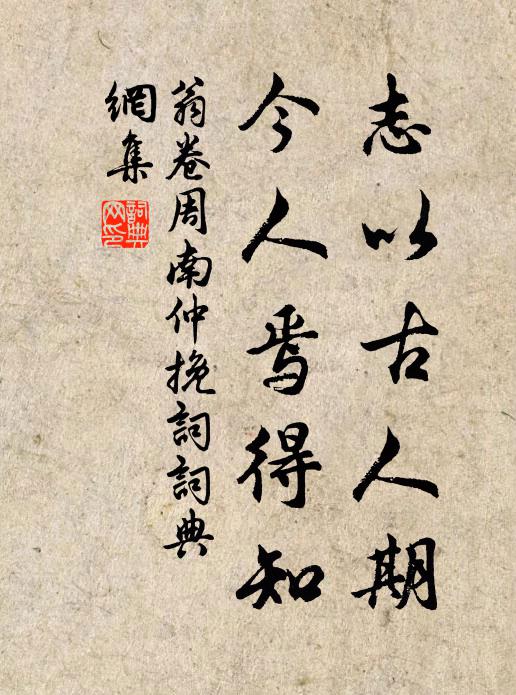 志以古人期
今人焉得知
翁卷周南仲挽詞詞典
網集
詞典
网印